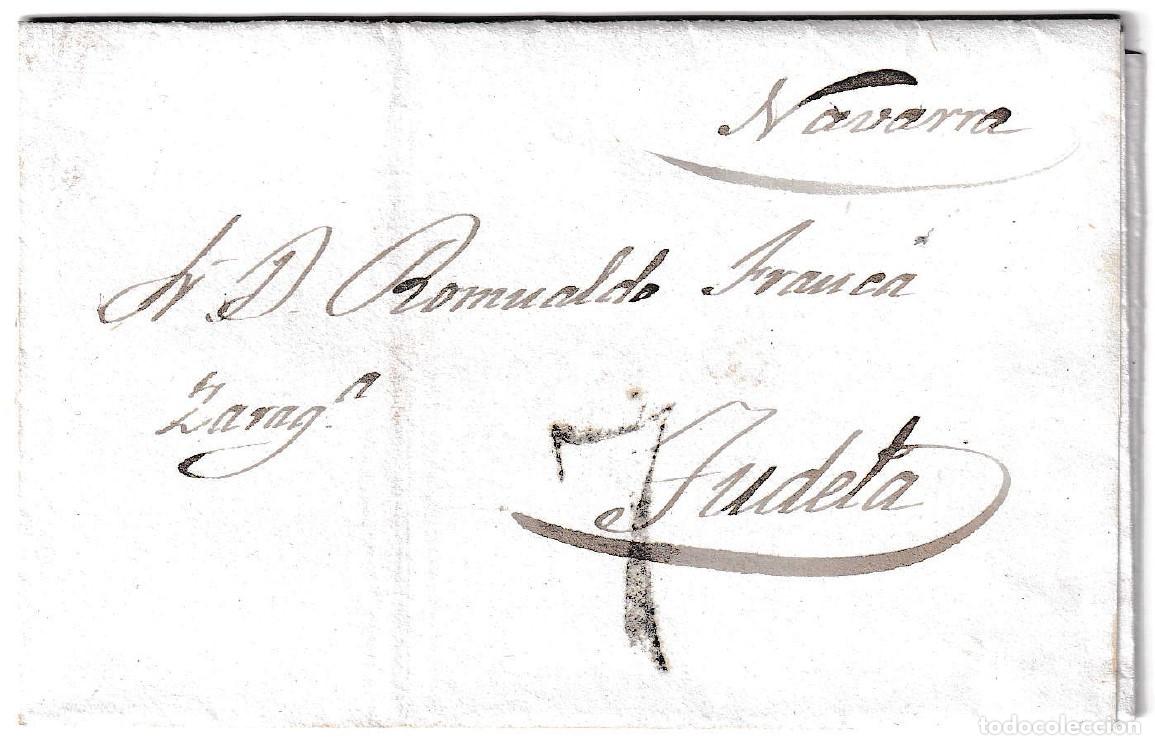 Navarra
Sr. D. Romualdo Franca
Zarag.a
7
Tudela
todocoleccion